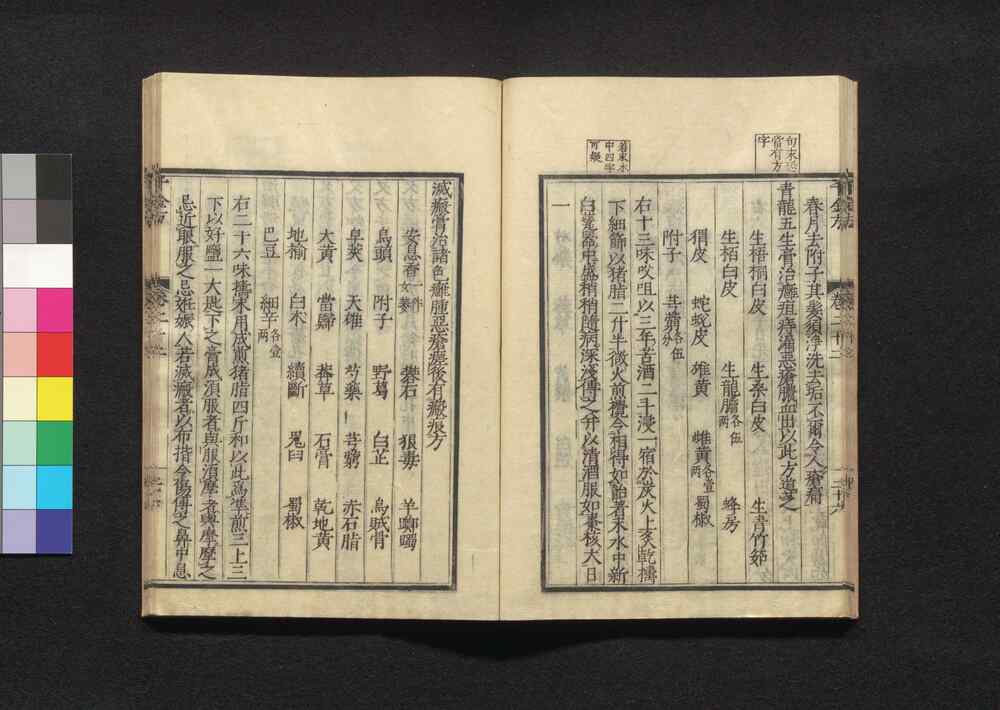 句末恐
當有方
字
著末水
中四字
可疑
春月去附子其髮須淨洗去垢不爾令人瘡痛
青龍五生膏治癰疽痔漏惡瘡膿血出以此方導之
生梧桐白皮 生桑白皮 生青竹茹
生栢白皮 生龍膽各伍兩
猬皮 蛇蛻皮 雄黃 雌黃各壹兩 蜀椒 蜂房
附子 芎藭各伍分
右十三味㕮咀以三年苦酒二斗浸一宿於炭火上炙乾擣
下細篩以猪脂二升半微火煎攪令相得如飴著末水中新
白瓷器中盛稍稍隨病深淺傅之并以清酒服如棗核大日
一
千金方 卷二十二
滅瘢膏治諸色癰腫惡瘡瘥後有瘢痕方
安息香 礬石 狼毒 羊躑躅
烏頭 附子 野葛 白芷 烏賊骨
皂莢 天雄 芍藥 芎藭 赤石脂
大黃 當歸 莽草 石膏 乾地黃
地榆 白朮 續斷 鬼臼 蜀椒
巴豆 細辛各壹兩
右二十六味擣末用成煎猪脂四斤和以此為準煎三上三
下以好鹽一大匙下之膏成須服者與服須摩者與摩摩之
忌近眼服之忌妊娠人若滅瘢者以布揩令傷傅之鼻中息